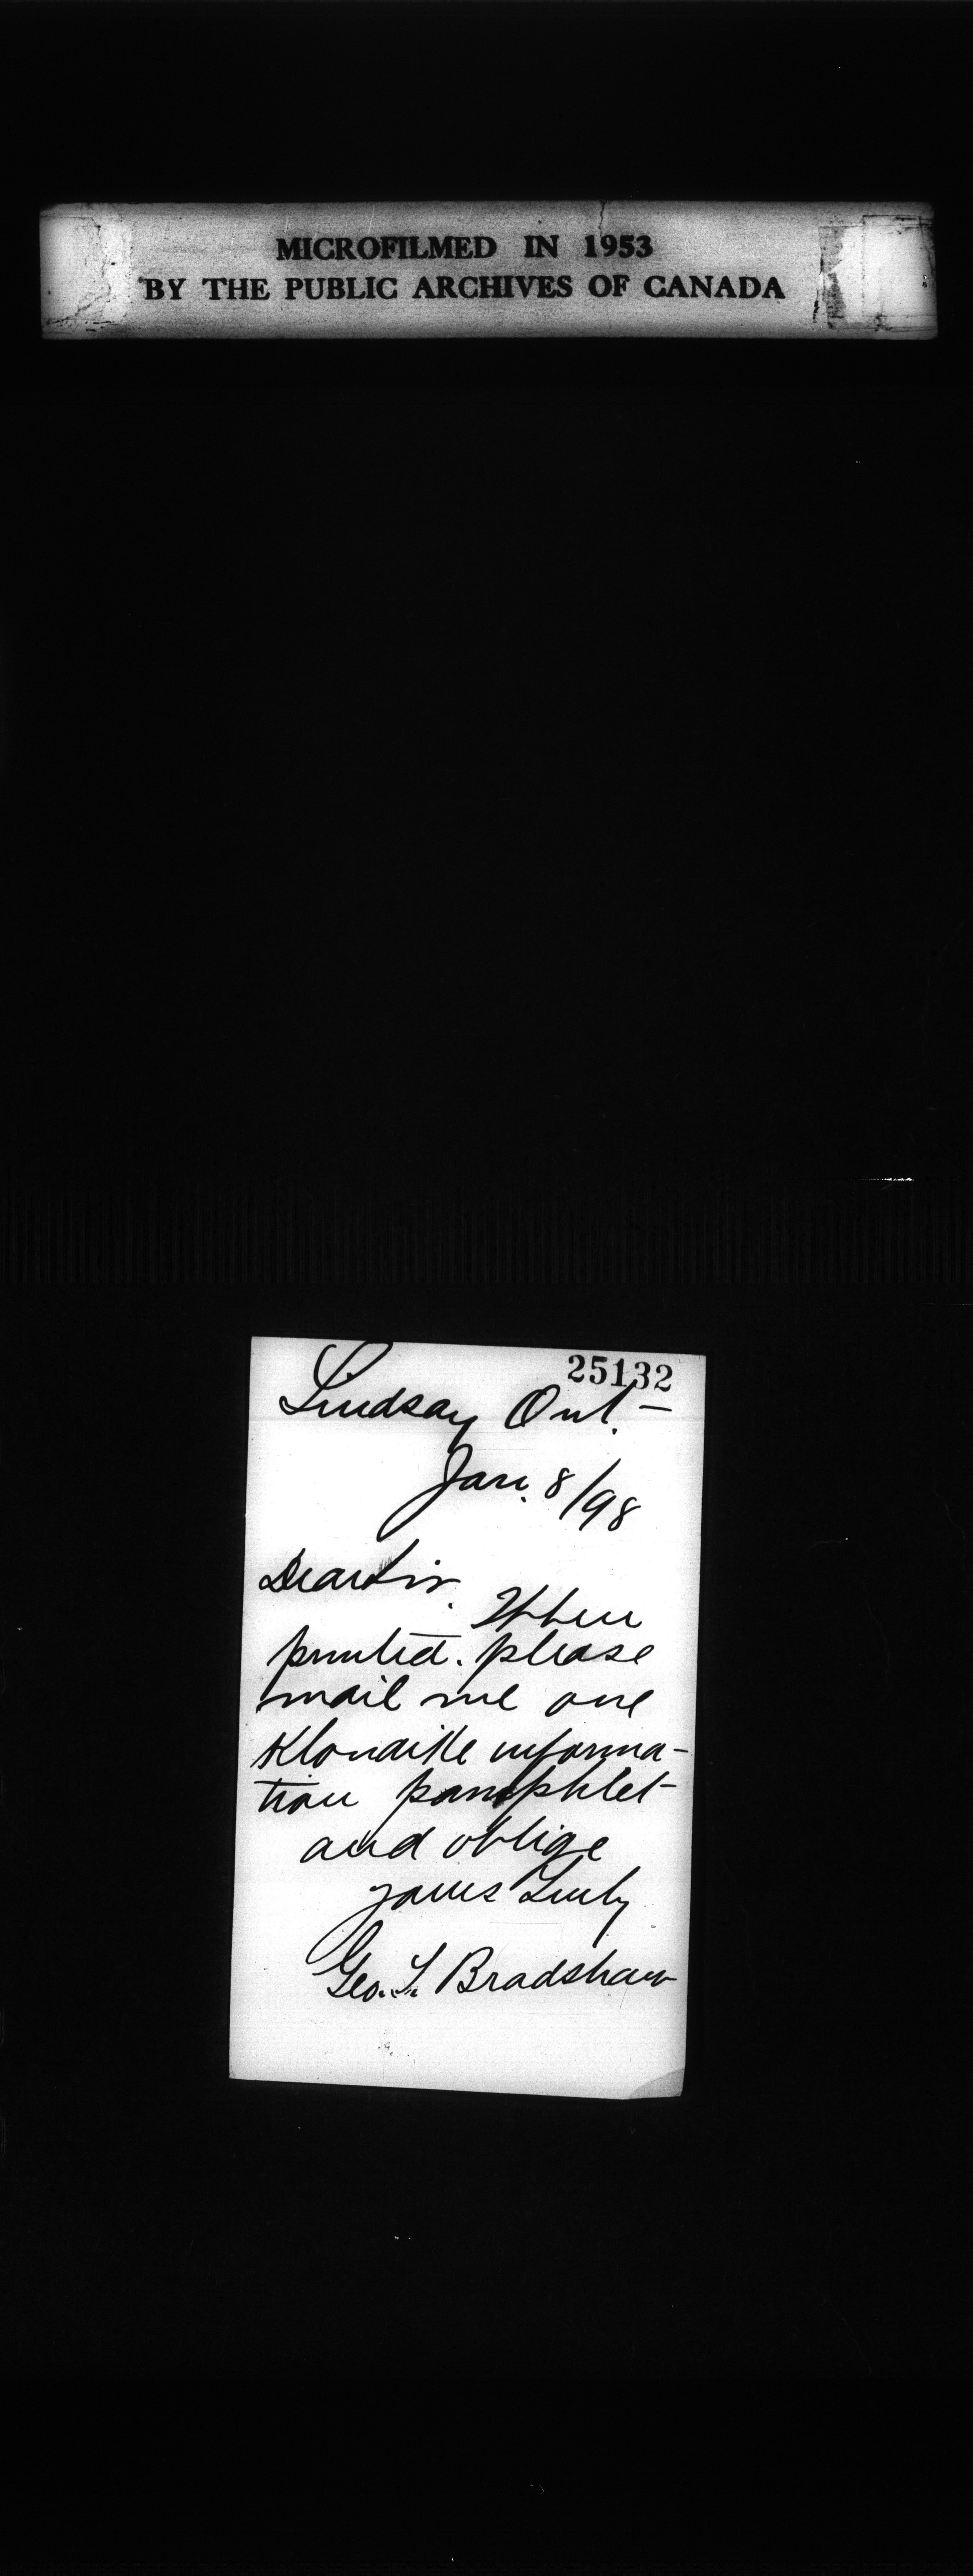 MICROFILMED IN 1953
BY THE PUBLIC ARCHIVES OF CANADA
25132
Lindsay Ont.-
Jan. 8/98
Dear Sir.
When
printed. please
mail me one
Klondike informa-
tion pamphlet
and oblige
yours Truly
Geo. S. Bradshaw